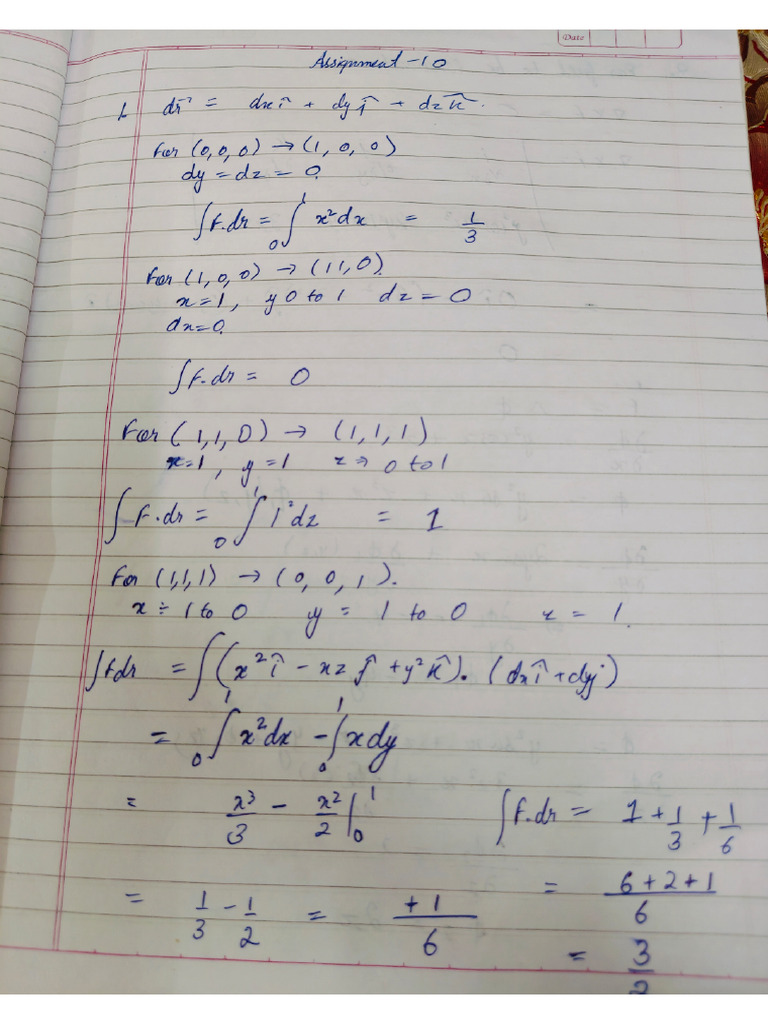 Date
Assignment - 10
1. dr⃗ = dxî + dyĵ + dzk̂.
For (0,0,0) → (1,0,0)
dy = dz = 0.
∫F.dr = ₀∫¹ x²dx = 1/3
For (1,0,0) → (11,0).
x=1, y 0 to 1 dz = 0
dx=0.
∫F.dr = 0
For (1,1,0) → (1,1,1)
x=1, y=1 z → 0 to 1
∫F.dr = ₀∫¹ 1²dz = 1
For (1,1,1) → (0,0,1).
x ÷ 1 to 0 y = 1 to 0 z = 1.
∫Fdr = ∫(x²î - xzĵ + y²k̂).(dxî + dyj)
= ₀∫¹ x²dx - ₀∫¹ xdy
= x³/3 - x²/2 |₀¹
= 1/3 - 1/2 = +1/6
∫F.dr = 1 + 1/3 + 1/6
= (6+2+1)/6
= 3/2